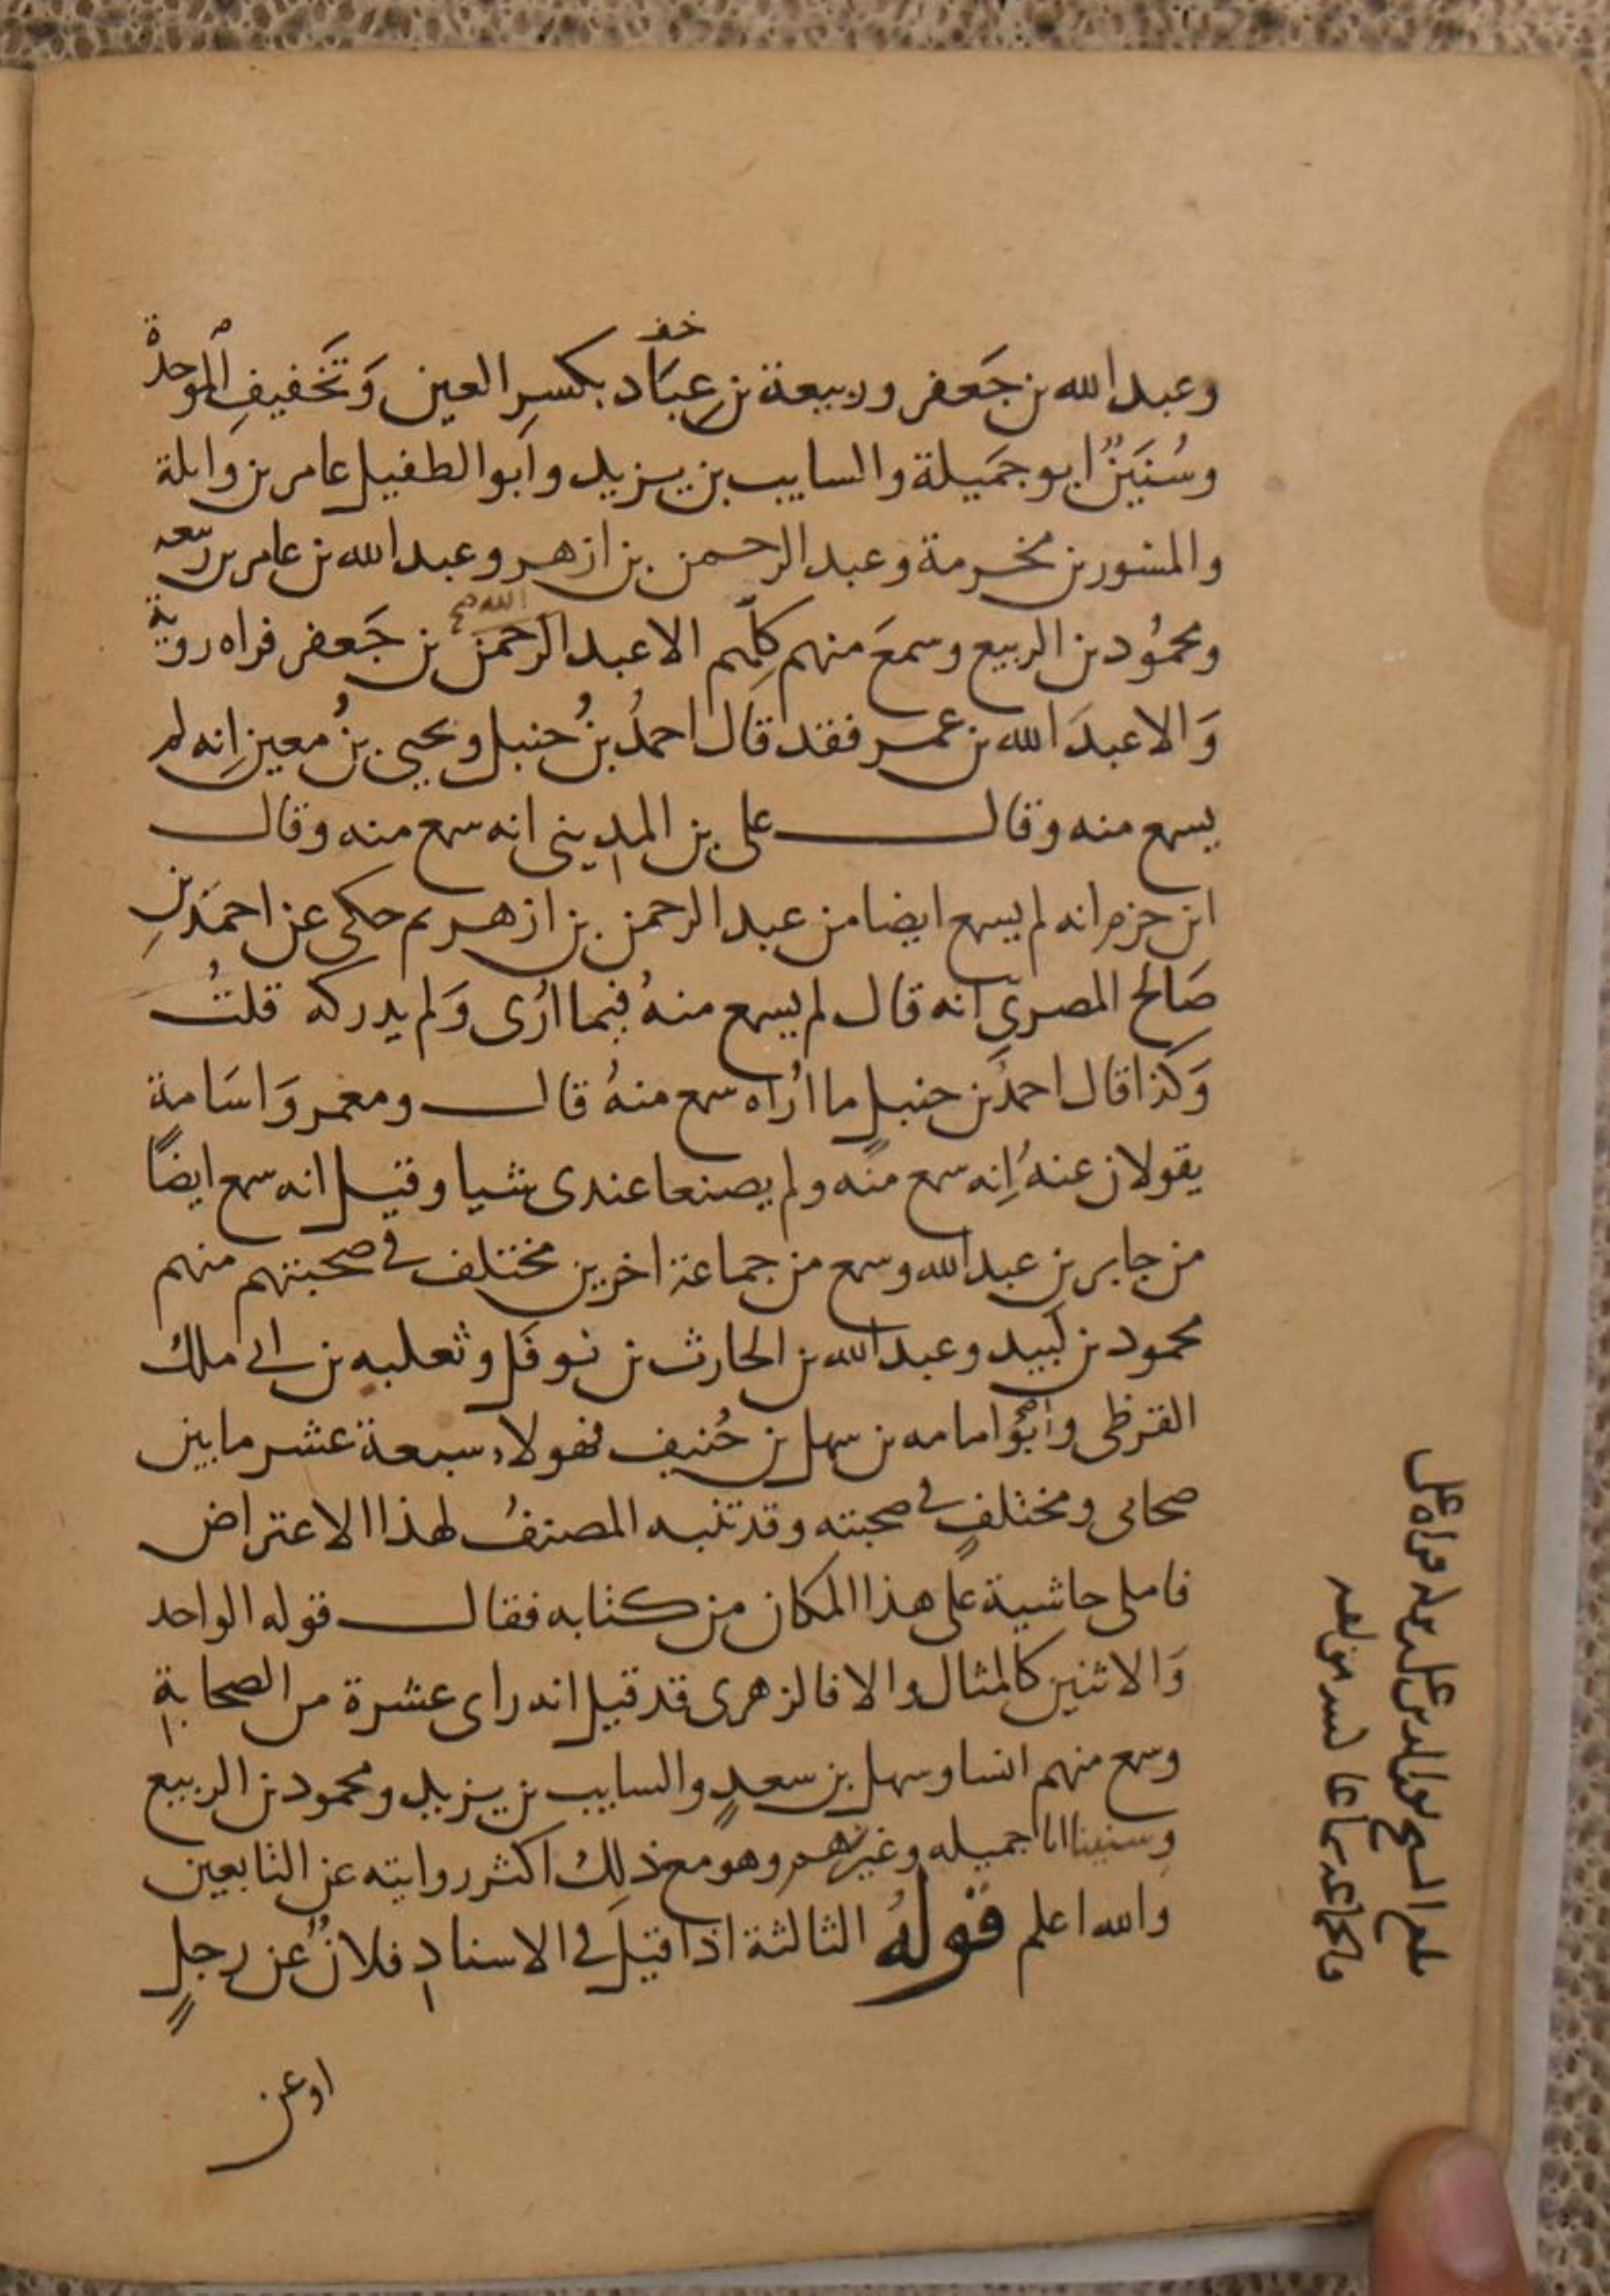 وعبد الله بن جَعفر وربيعة بن عِبَاد بكسرِ العين وَتَخفيفِ الموحدة
خف
وسُنَينٌ ابو جَميلة والسايب بن يزيد وابو الطفيل عامر بن واثلة
والمسور بن مخرمة وعبد الرحمن بن ازهر وعبد الله بن عامر بن ربيعه
ومحمُود بن الربيع وسمعَ منهم كلِّهم الا عبد الرحمن بن جَعفر فراه رويةً
الله صح
وَالا عبدَ الله بن عمر فقد قال احمدُ بنُ حنبل ويحيى بنُ معين إنه لم
يسمع منه وقال على بن المديني انه سمع منه وقال
ابن حزم انه لم يسمع ايضا من عبد الرحمن بن ازهر ثم حكى عن احمَد بنِ
صَالح المصري انه قال لم يسمع منهُ فيما اُرى وَلم يدركه قلتُ
وَكذا قال احمدُ بن حنبلٍ ما اُراه سمع منهُ قال ومعمر وَاسَامة
يقولان عنهُ إنه سمع منه ولم يصنعا عندى شيا وقيل انه سمع ايضًا
من جابر بن عبد الله وسمع من جماعة اخرين مختلف في صحبتهم منهم
محمود بن لَبيد وعبد الله بن الحارث بن نوفَل وثعلبه بن ابي ملك
القرظى وأبُو امامه بن سهل بن حُنيف فهولاء سبعة عشر ما بين
صحابى ومختلفٍ في صحبته وقد تنبه المصنفُ لهذا الاعتراض
فاملى حاشية على هذا المكان من كتابه فقال قوله الواحد
وَالاثنين كالمثال والا فالزهرى قد قيل انه راى عشرة من الصحابةِ
وسمع منهم انسا وسهل بن سعدٍ والسايب بن يزيد ومحمود بن الربيع
وسنينا ابا جميله وغيرهم وهو مع ذلك اكثر روايته عن التابعين
والله اعلم قولهُ الثالثة اذا قيلَ في الاسنادِ فلانٌ عن رجلٍ
او عن